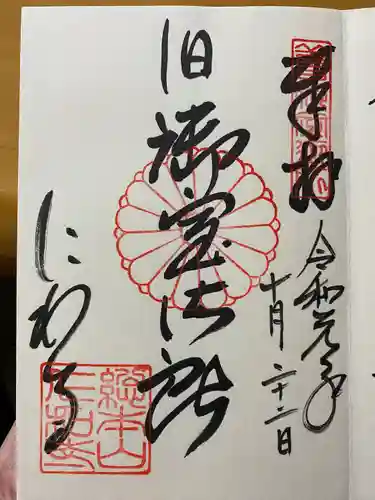 奉拝
令和元年
十月二十二日
旧御室御所
にわち
總本山
仁和寺